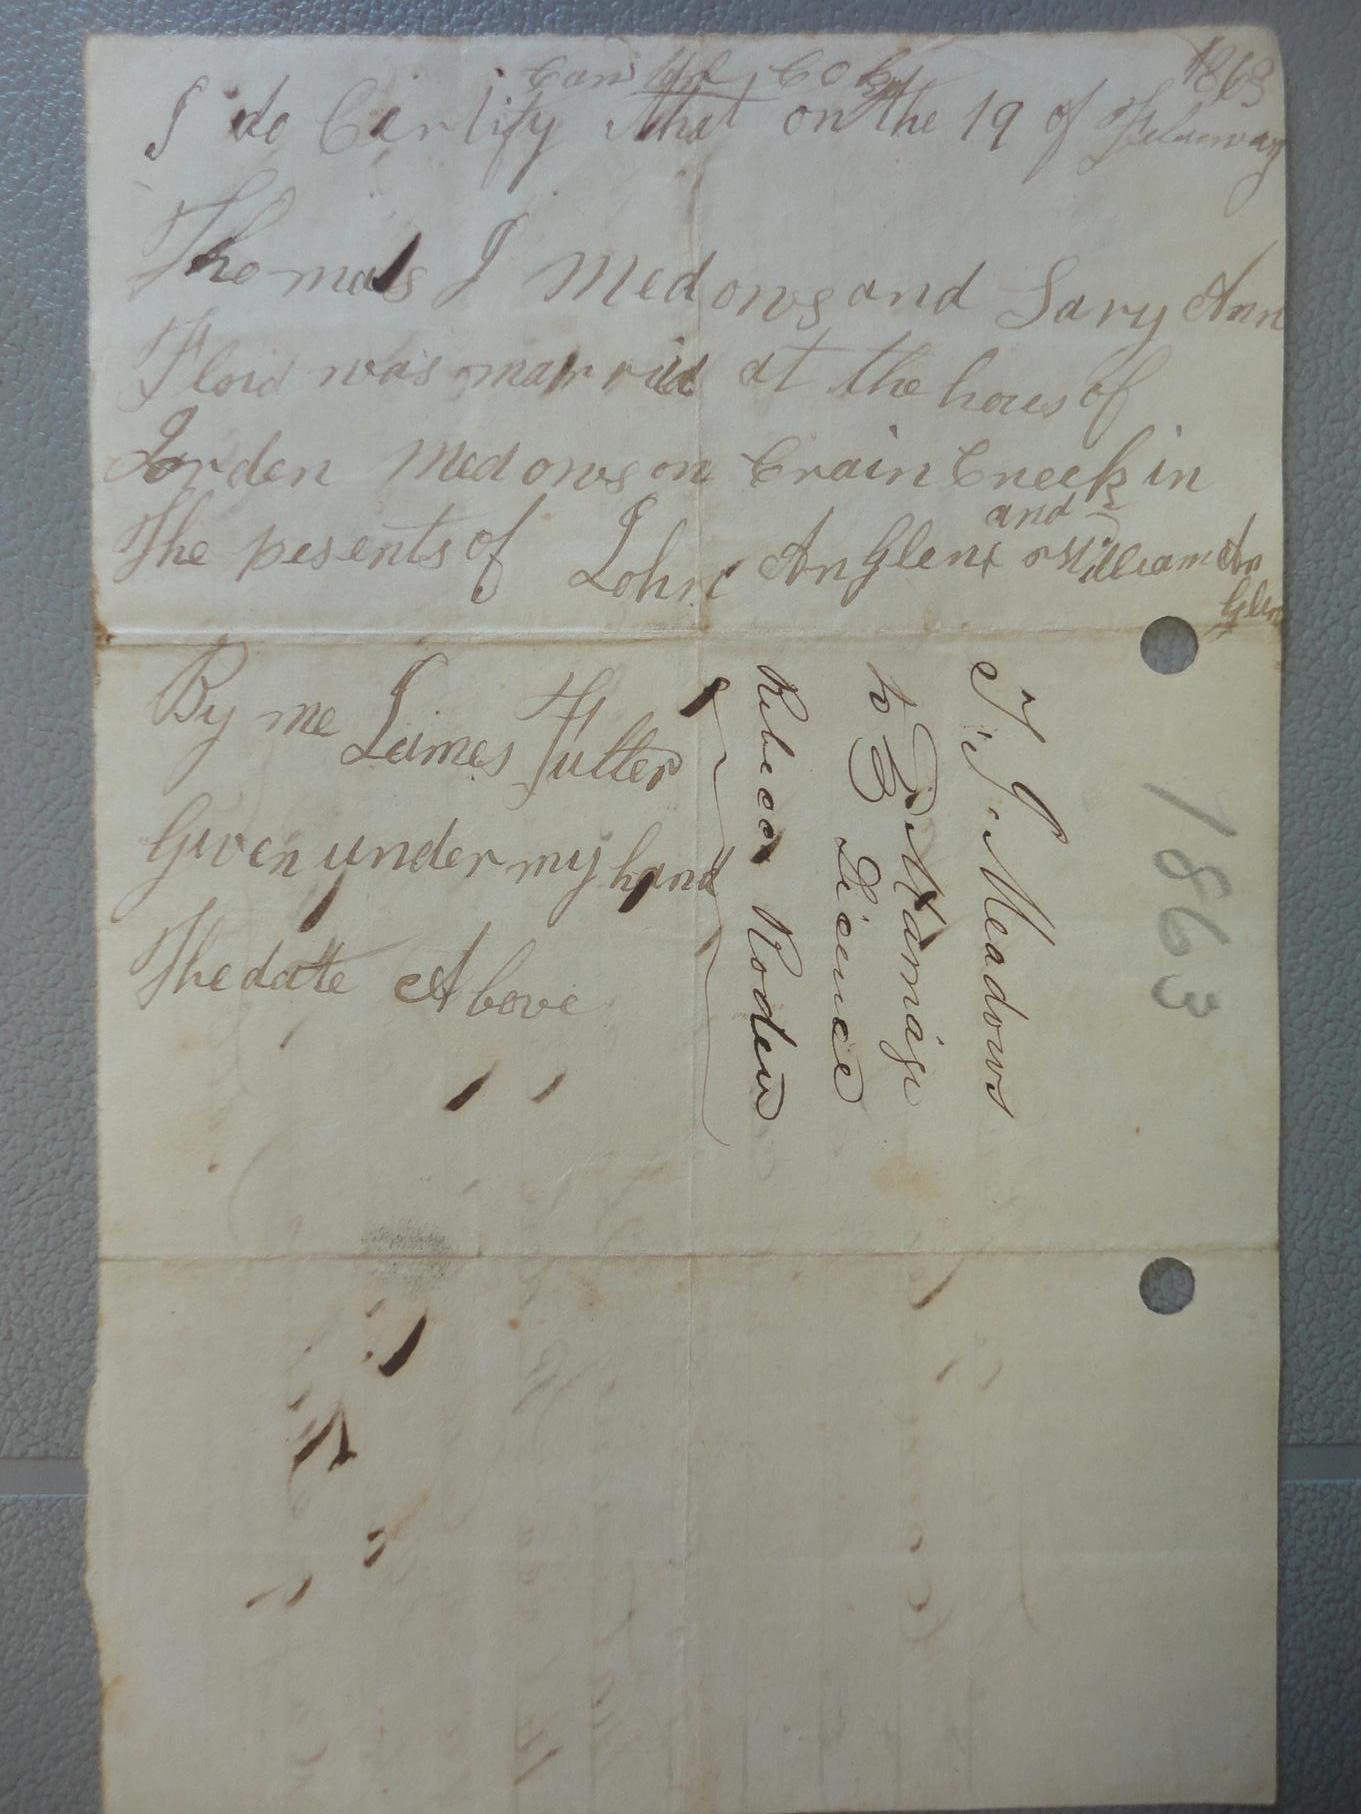 1863
I do Certify that on the 19 of Februway
Thomas J Medows and Sary Ann
Floid was marrid at the hous of
Jorden Medows on Crain Creek in
The pesents of John Anglen and William An
Glen
By me James Fulter
Given under my hand
The datte Above
T. J. Meadows
to } Marriage
Licence
Rebecca Roden
1863